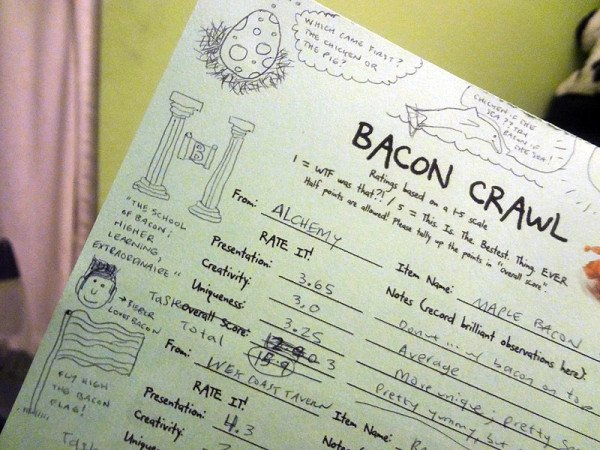 WHICH CAME FIRST?
THE CHICKEN OR
THE PIG?
CHICKEN OF THE
SEA?? TRY
BACON OF
THE SEA!
BACON CRAWL
Ratings based on a 1-5 scale
1 = WTF was that?! / 5 = This. Is. The. Bestest. Thing. EVER
Half points are allowed! Please tally up the points in "overall score".
B
"THE SCHOOL
OF BACON:
HIGHER
LEARNING,
EXTRAORDINAIRE"
From: ALCHEMY Item Name: MAPLE BACON
RATE IT! Notes (record brilliant observations here):
Presentation: 3.65 Donut ... w/ bacon on top
Creativity: 3.0 Average
Uniqueness: 3.25 More unique; pretty
Taste Overall Score: 3 Pretty yummy, but
Total
→
LOVES BACON
FLY HIGH
THE BACON
FLAG!
From: WEX COAST TAVERN Item Name:
RATE IT! Notes
Presentation: 4.3
Creativity:
Uniqueness:
Taste